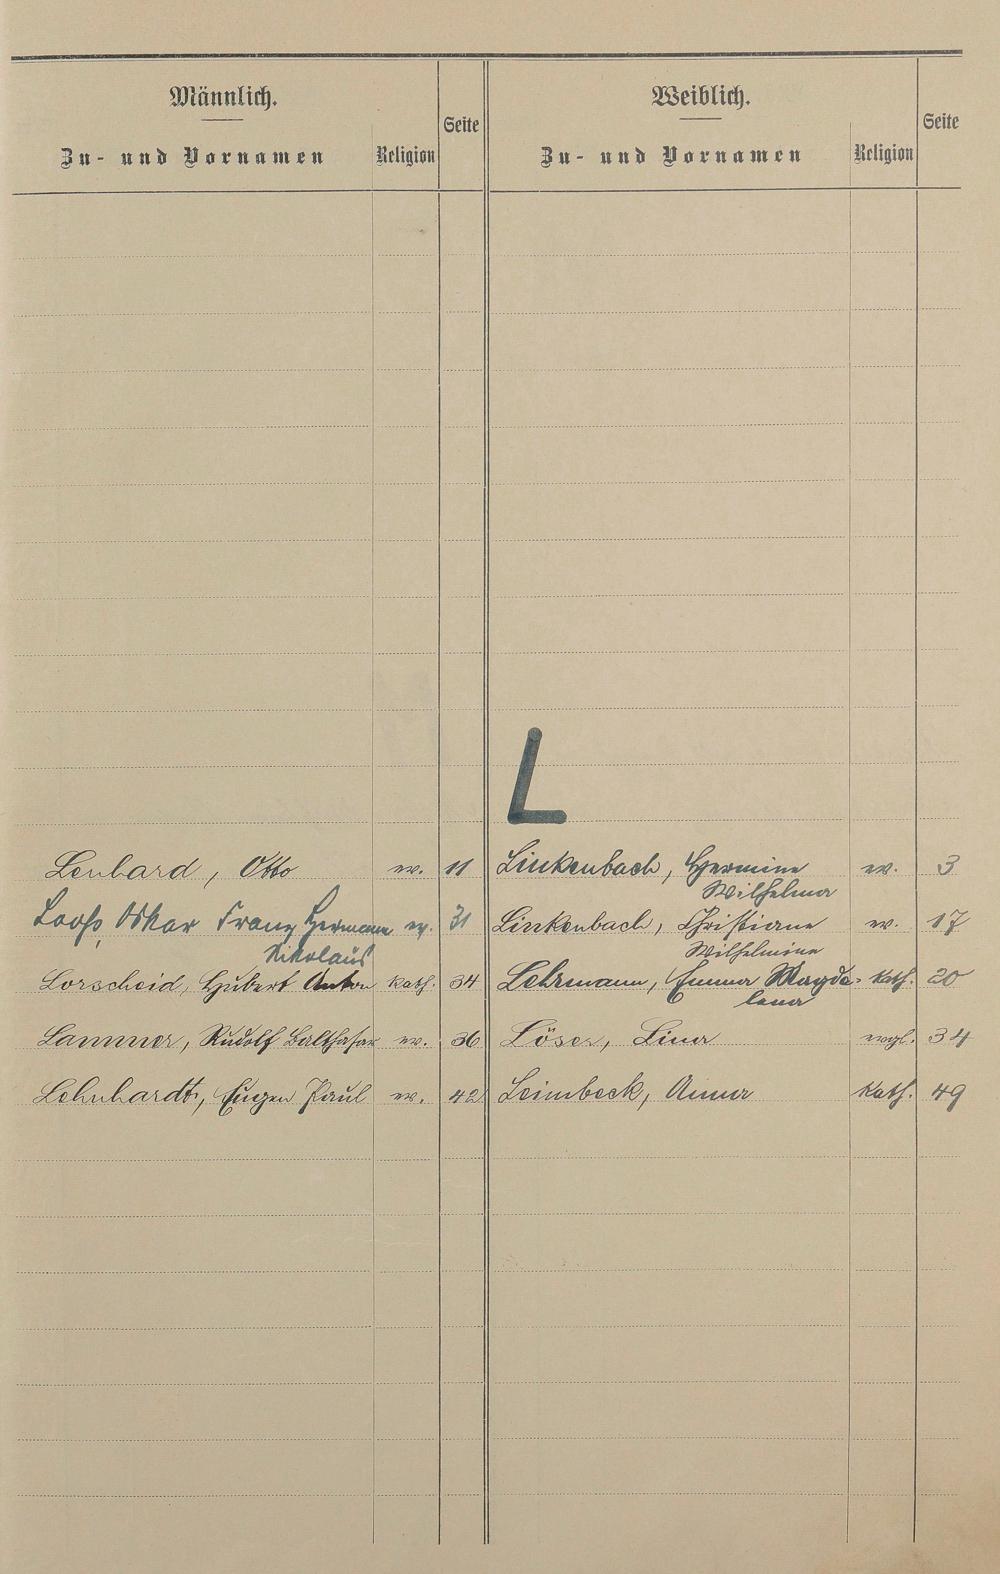 Männlich.
Zu- und Vornamen Religion Seite
Weiblich.
Zu- und Vornamen Religion Seite
L
Lenhard, Otto ev. 11
Loohs, Oskar Franz Hermann ev. 31
Nikolaus
Lorscheid, Hubert Anton kath. 34
Lammer, Rudolf Balthasar ev. 36
Lehnhardt, Eugen Paul ev. 42
Linkenbach, Hermine ev. 3
Wilhelma
Linkenbach, Christiane ev. 17
Wilhelmine
Lehrmann, Emma Magda- kath. 20
lena
Löser, Lina evgl. 34
Leimbeck, Anna kath. 49